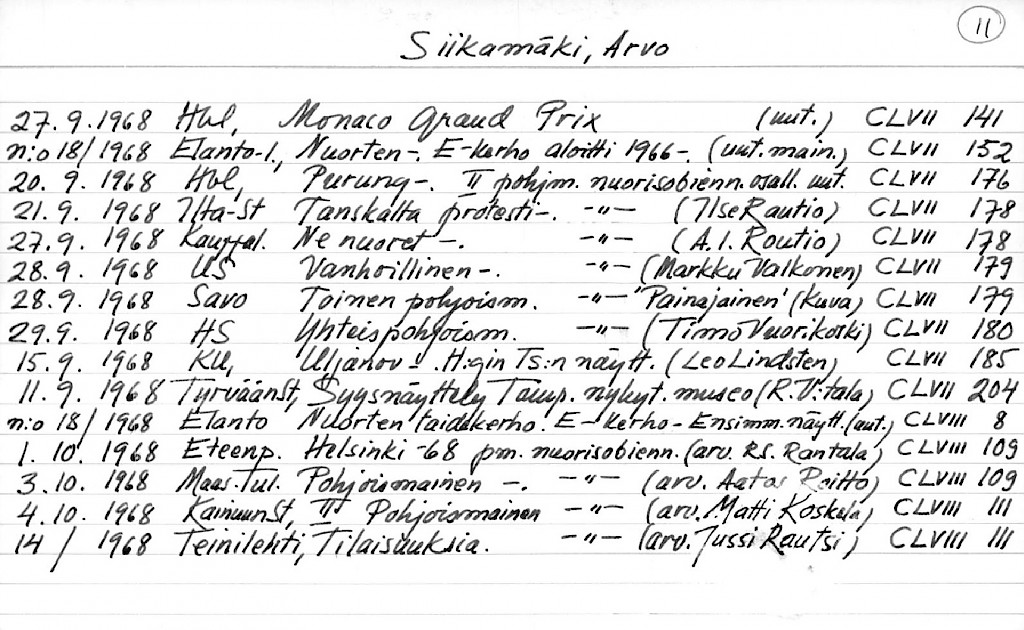 11
Siikamäki, Arvo
27.9.1968 Hbl, Monaco Grand Prix (uut.) CLVII 141
n:o 18/1968 Elanto-l., Nuorten-. E-kerho aloitti 1966-. (uut.main.) CLVII 152
20.9.1968 Hbl, Purung-. II pohjm. nuorisobienn.osall. uut. CLVII 176
21.9.1968 Ilta-St Tanskalta protesti-. -"- (Ilse Rautio) CLVII 178
27.9.1968 Kauppal. Ne nuoret -. -"- (A.I. Routio) CLVII 178
28.9.1968 US Vanhoillinen-. -"- (Markku Valkonen) CLVII 179
28.9.1968 Savo Toinen pohjoism. -"- 'Painajainen' (kuva) CLVII 179
29.9.1968 HS Yhteispohjoism. -"- (Timo Vuorikoski) CLVII 180
15.9.1968 KU, Uljanov-. H:gin Ts:n näytt. (Leo Lindsten) CLVII 185
11.9.1968 TyrväänSt, Syysnäyttely Tamp. nykyt. museo (R.V:tala) CLVII 204
n:o 18/1968 Elanto Nuorten taidekerho. E-kerho-Ensimm.näytt.(uut.) CLVIII 8
1.10.1968 Eteenp. Helsinki-68 pm. nuorisobienn.(arv. R.S. Rantala) CLVIII 109
3.10.1968 Maas.Tul. Pohjoismainen -. -"- (arv. Aatos Roitto) CLVIII 109
4.10.1968 KainuunSt, II Pohjoismainen -"- (arv. Matti Koskela) CLVIII 111
14/1968 Teinilehti, Tilaisuuksia. -"- (arv. Jussi Rautsi) CLVIII 111